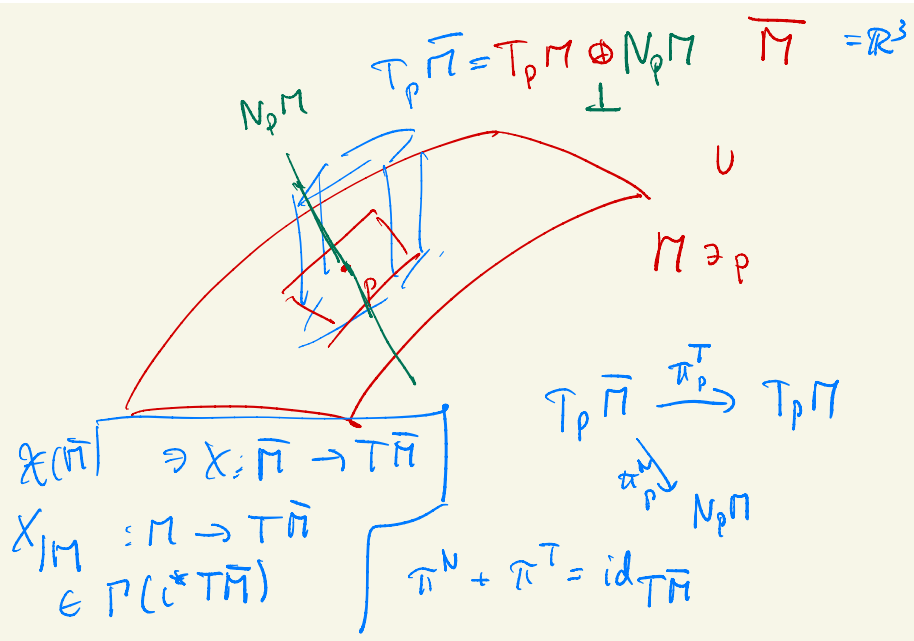 T_p M̄ = T_p M ⊕ N_p M
⊥
M̄ = ℝ³
N_p M
∪
M ∋ p
p
T_p M̄ →^{π_p^T} T_p M
π_p^N ↘
N_p M
𝔛(M̄) ∋ X : M̄ → TM̄
X|_M : M → TM̄
∈ Γ(i* TM̄)
π^N + π^T = id_{TM̄}